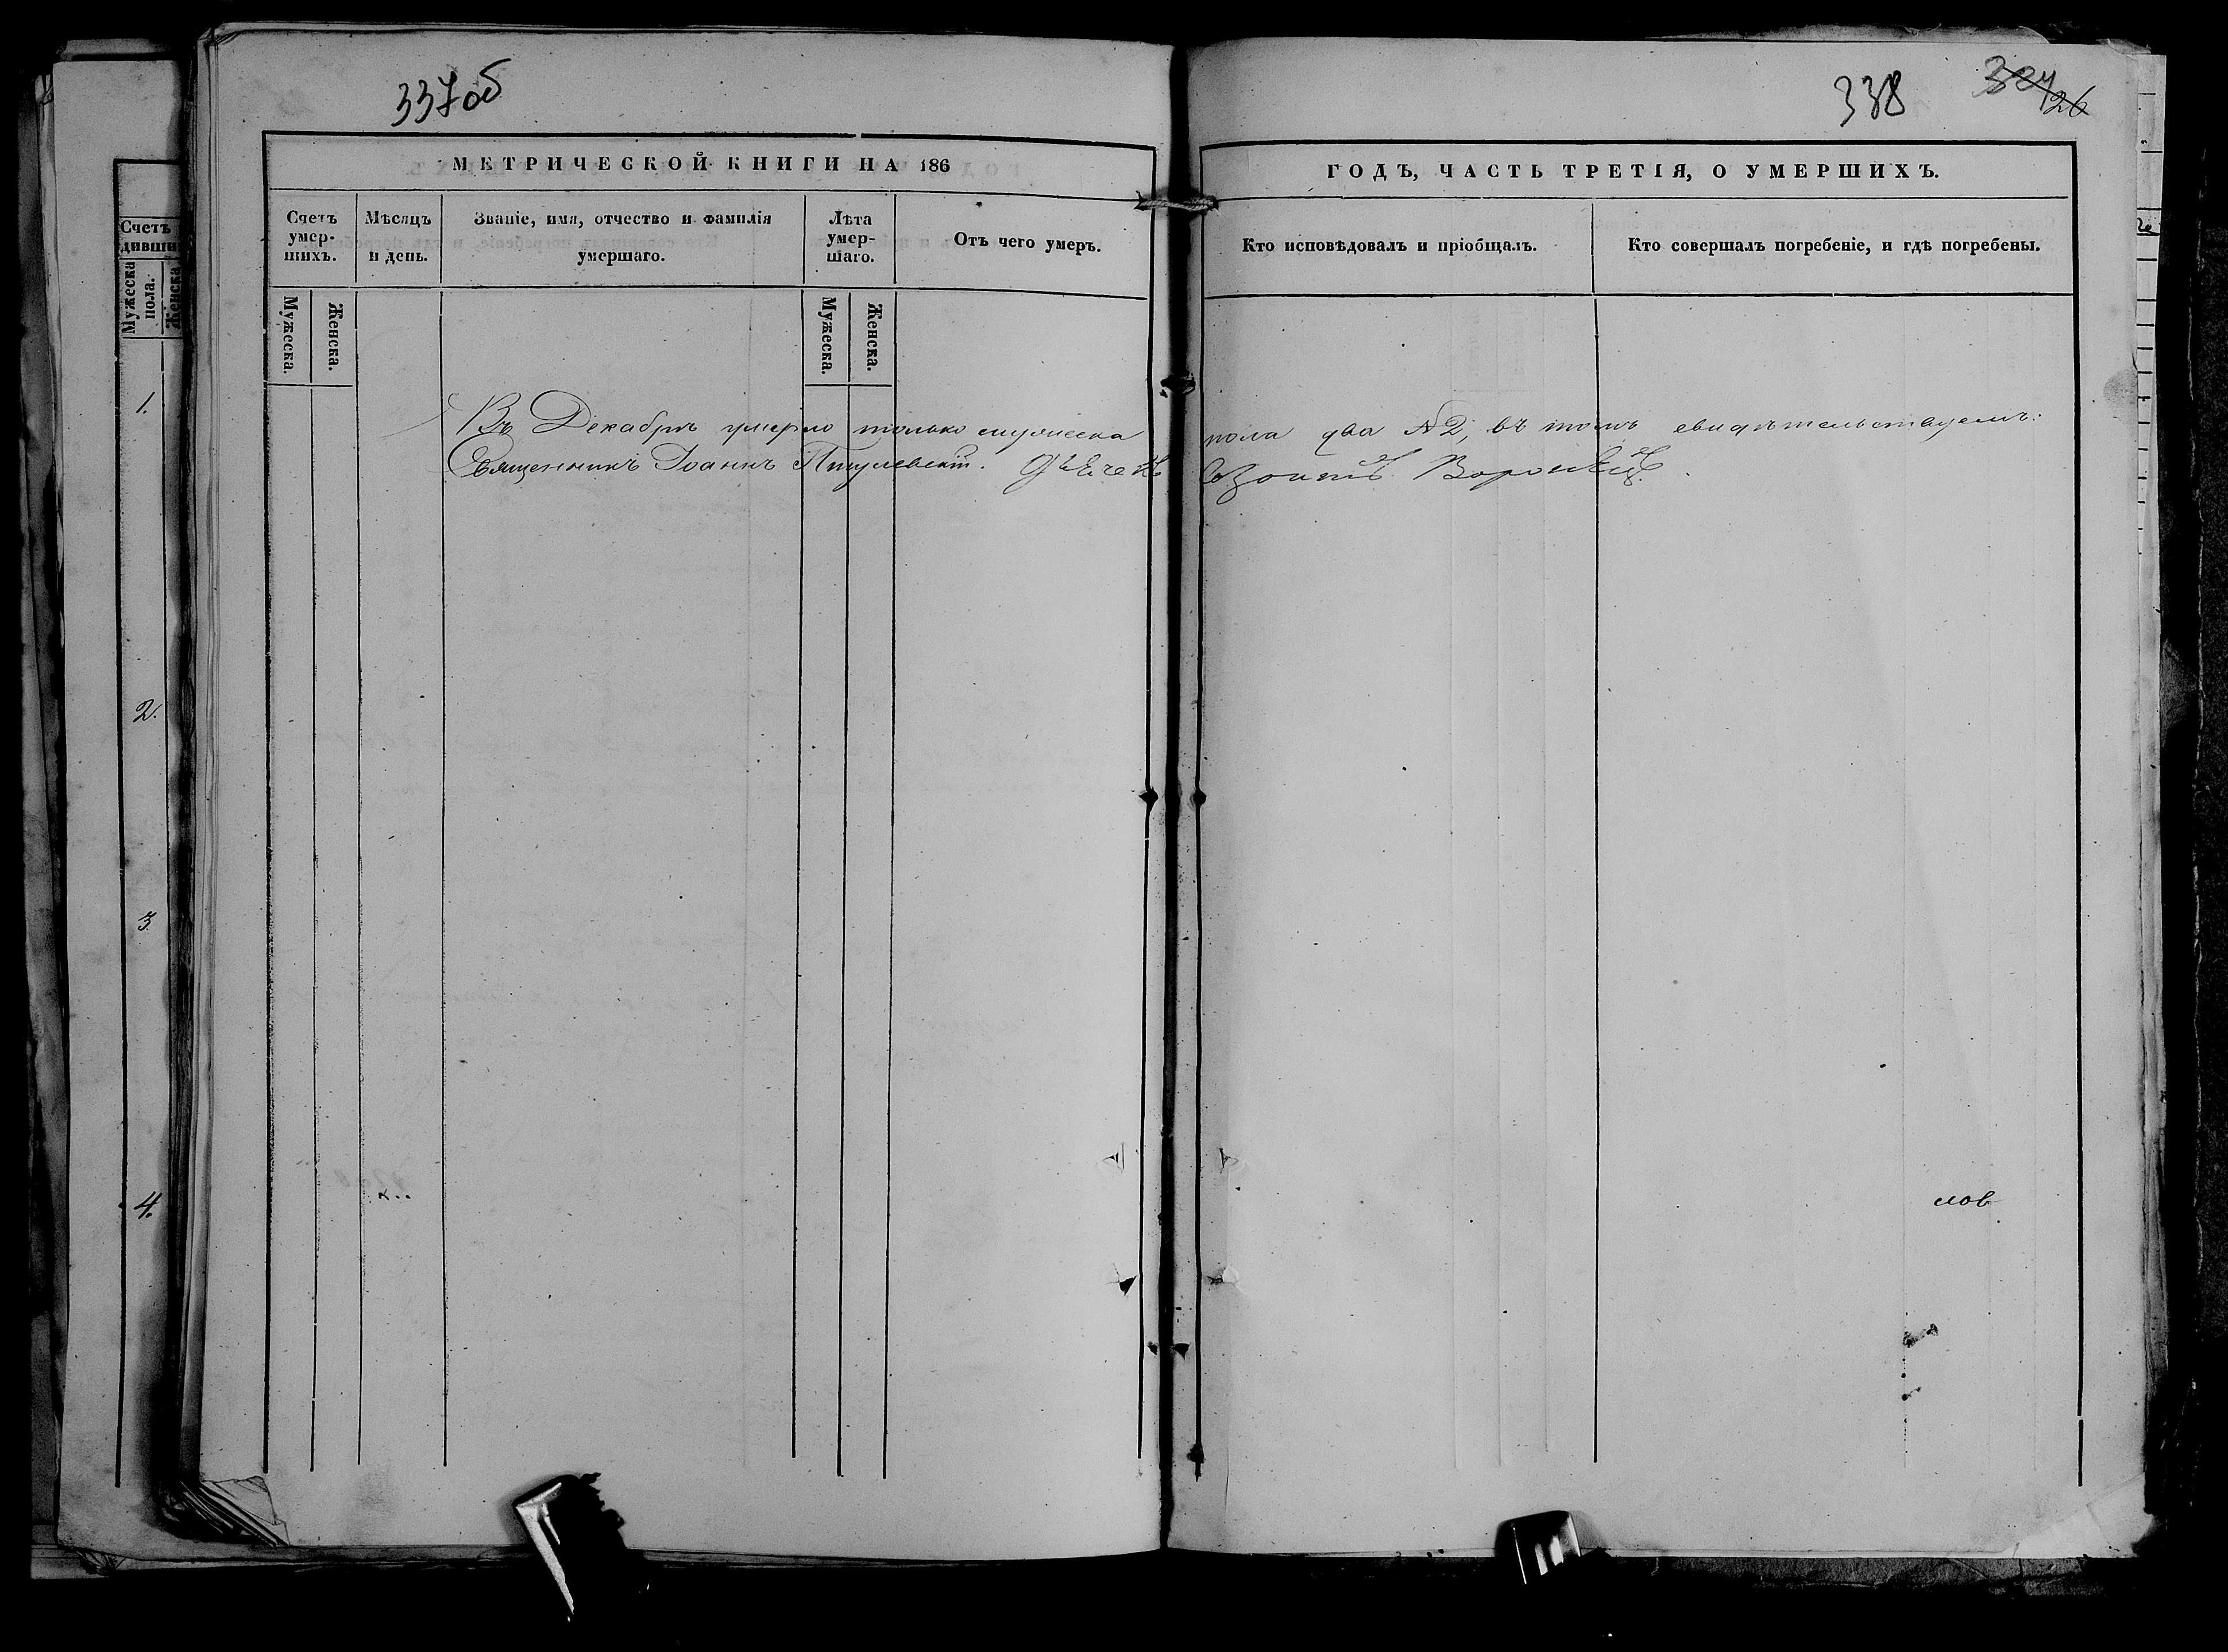 337об
МЕТРИЧЕСКОЙ КНИГИ НА 186
Счетъ умер- шихъ.
Мѣсяцъ и день.
Званіе, имя, отчество и фамилія умершаго.
Лѣта умер- шаго.
Отъ чего умеръ.
Мужеска.
Женска.
Мужеска.
Женска.
338
ГОДЪ, ЧАСТЬ ТРЕТІЯ, О УМЕРШИХЪ.
Кто исповѣдовалъ и пріобщалъ.
Кто совершалъ погребеніе, и гдѣ погребены.
Въ Декабрѣ умерло только мужеска пола два №2, въ томъ свидѣтельствуемъ:
Священникъ Іоаннъ
Счетъ
дивши
Мужеска пола.
Женска
1.
2.
3.
4.
лов